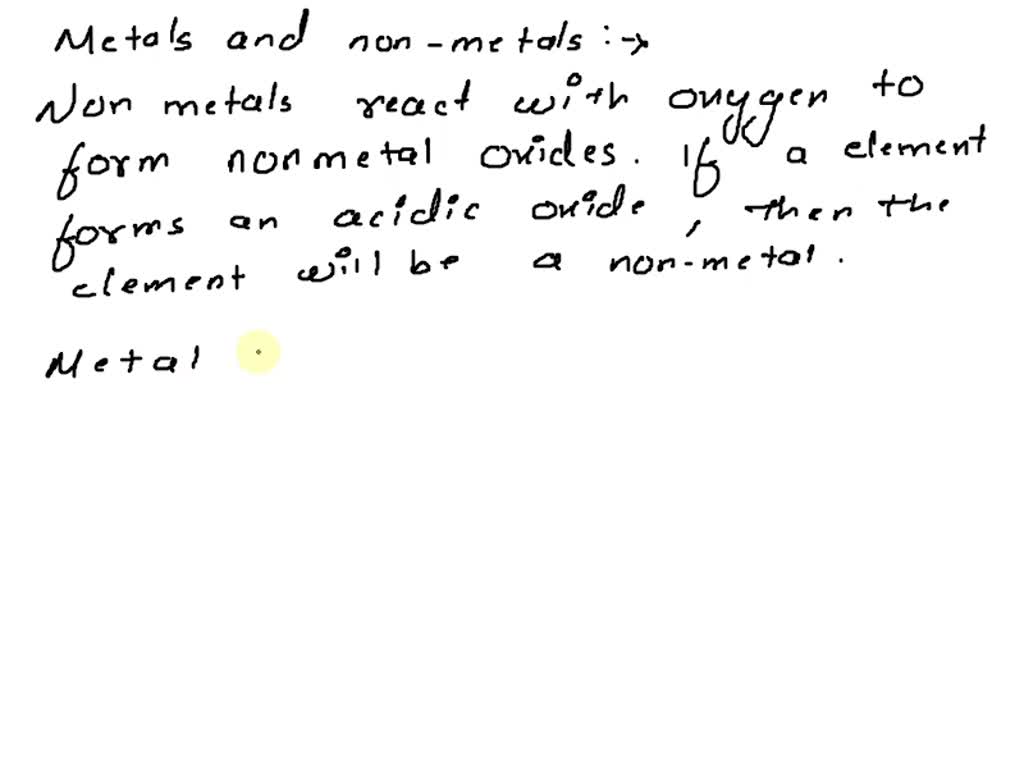 Metals and non-metals :→
Non metals react with oxygen to
form nonmetal oxides. If a element
forms an acidic oxide, then the
element will be a non-metal.
Metal